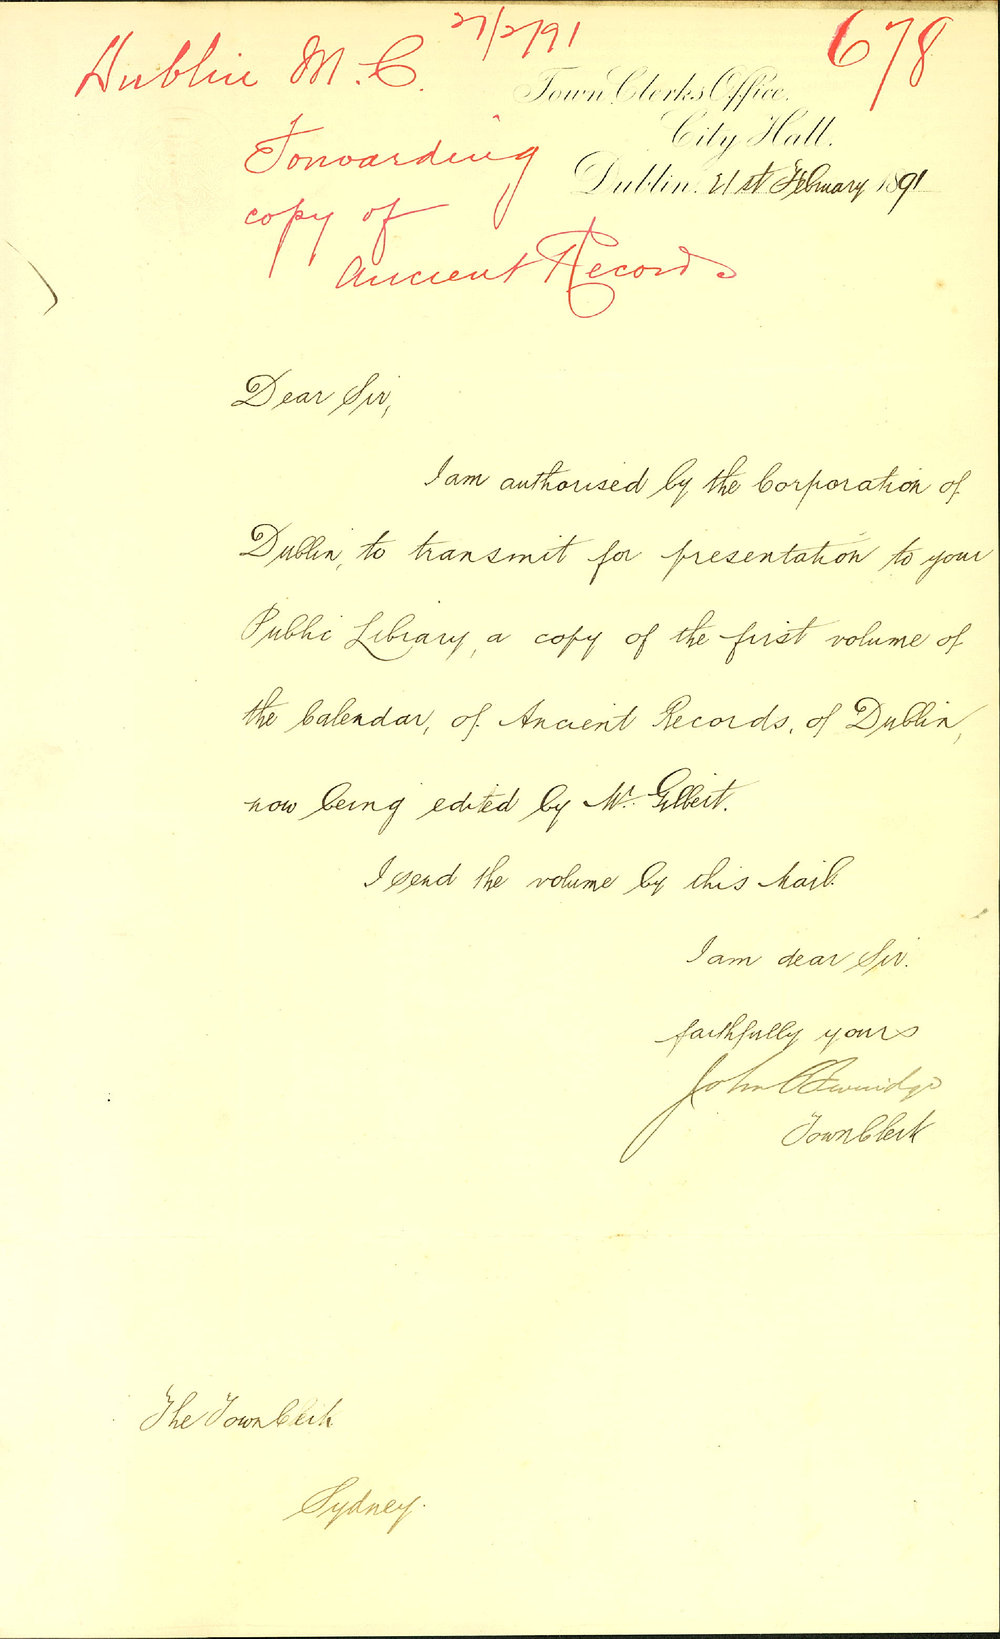 27/2/91
678
Dublin M.C.
Town Clerks Office,
City Hall.
Forwarding
Dublin. 21st February 1891
copy of
Ancient Records
Dear Sir,
I am authorised by the Corporation of
Dublin, to transmit for presentation to your
Public Library, a copy of the first volume of
the Calendar, of Ancient Records, of Dublin,
now being edited by Mr. Gilbert.
I send the volume by this Mail.
I am dear Sir.
faithfully yours
John
Town Clerk
The Town Clerk
Sydney.